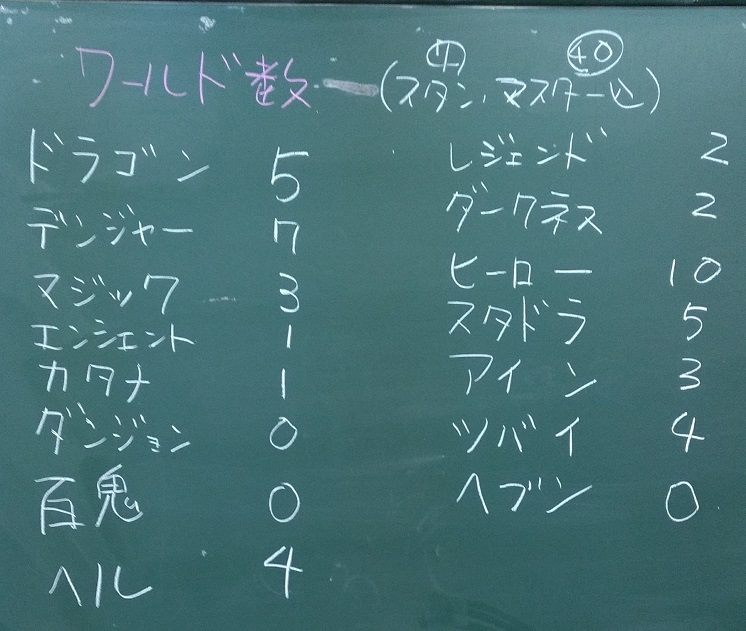 ワールド数 (スタン、マスター込)
40
ドラゴン 5
デンジャー 7
マジック 3
エンシェント 1
カタナ 1
ダンジョン 0
百鬼 0
ヘル 4
レジェンド 2
ダークネス 2
ヒーロー 10
スタドラ 5
アイン 3
ツバイ 4
ヘブン 0